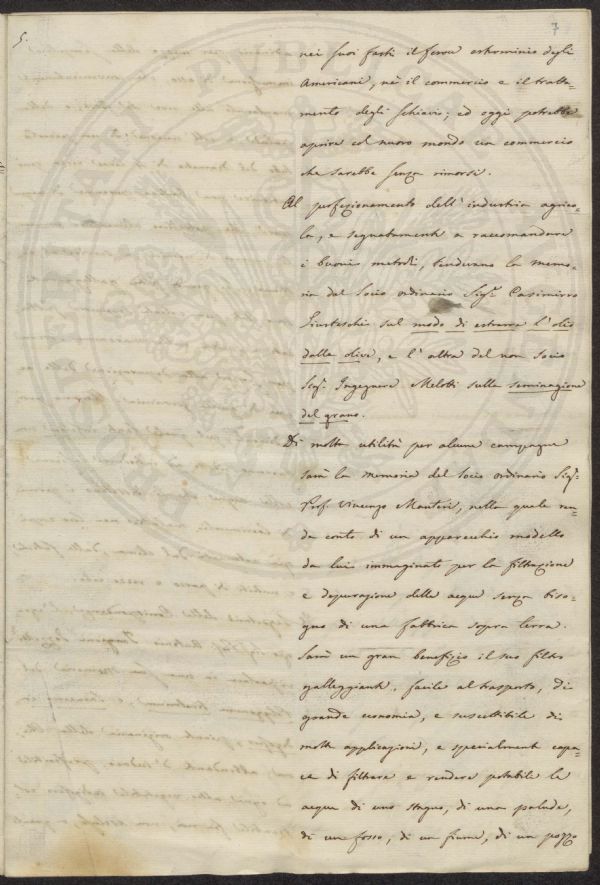 5.
7
nei suoi fasti il feroce esterminio degli
Americani, nè il commercio e il tratta-
mento degli schiavi; ed oggi potrebbe
aprire col nuovo mondo un commercio
che sarebbe senza rimorsi.
Al perfezionamento dell'industria agrico-
la, e segnatamente a raccomandare
i buoni metodi, tendevano la memo-
ria del Socio ordinario Sigr. Casimirro
Giusteschi sul modo di estrarre l'olio
dalle olive, e l'altra del non Socio
Sigr. Ingegnere Melotti sulla seminagione
del grano.
Di molta utilità per alcune campagne
sarà la memoria del Socio ordinario Sigr.
Prof. Vincenzo Manteri, nella quale ren-
de conto di un apparecchio modello
da lui immaginato per la filtrazione
e depurazione delle acque senza biso-
gno di una fabbrica sopra terra.
Sarà un gran benefizio il suo filtro
galleggiante, facile al trasporto, di
grande economia, e suscettibile di
molte applicazioni, e specialmente capa-
ce di filtrare e rendere potabile le
acque di uno stagno, di una palude,
di un fosso, di un fiume, di un pozzo